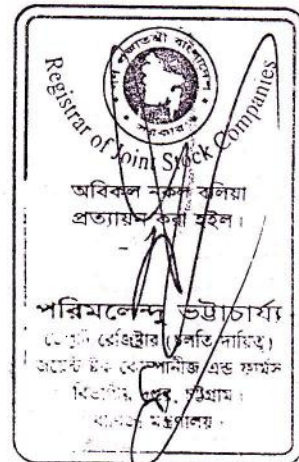 গণ প্রজাতন্ত্রী বাংলাদেশ
সরকার
Registrar of Joint Stock Companies
অবিকল নকল বলিয়া
প্রত্যায়ন করা হইল।
পরিমলেন্দু ভট্টাচার্য্য
রেজিষ্ট্রার (চলতি দায়িত্ব)
জয়েন্ট ষ্টক কোম্পানীজ এন্ড ফার্মস
বিভাগীয় দপ্তর, চট্টগ্রাম।
মন্ত্রণালয়।